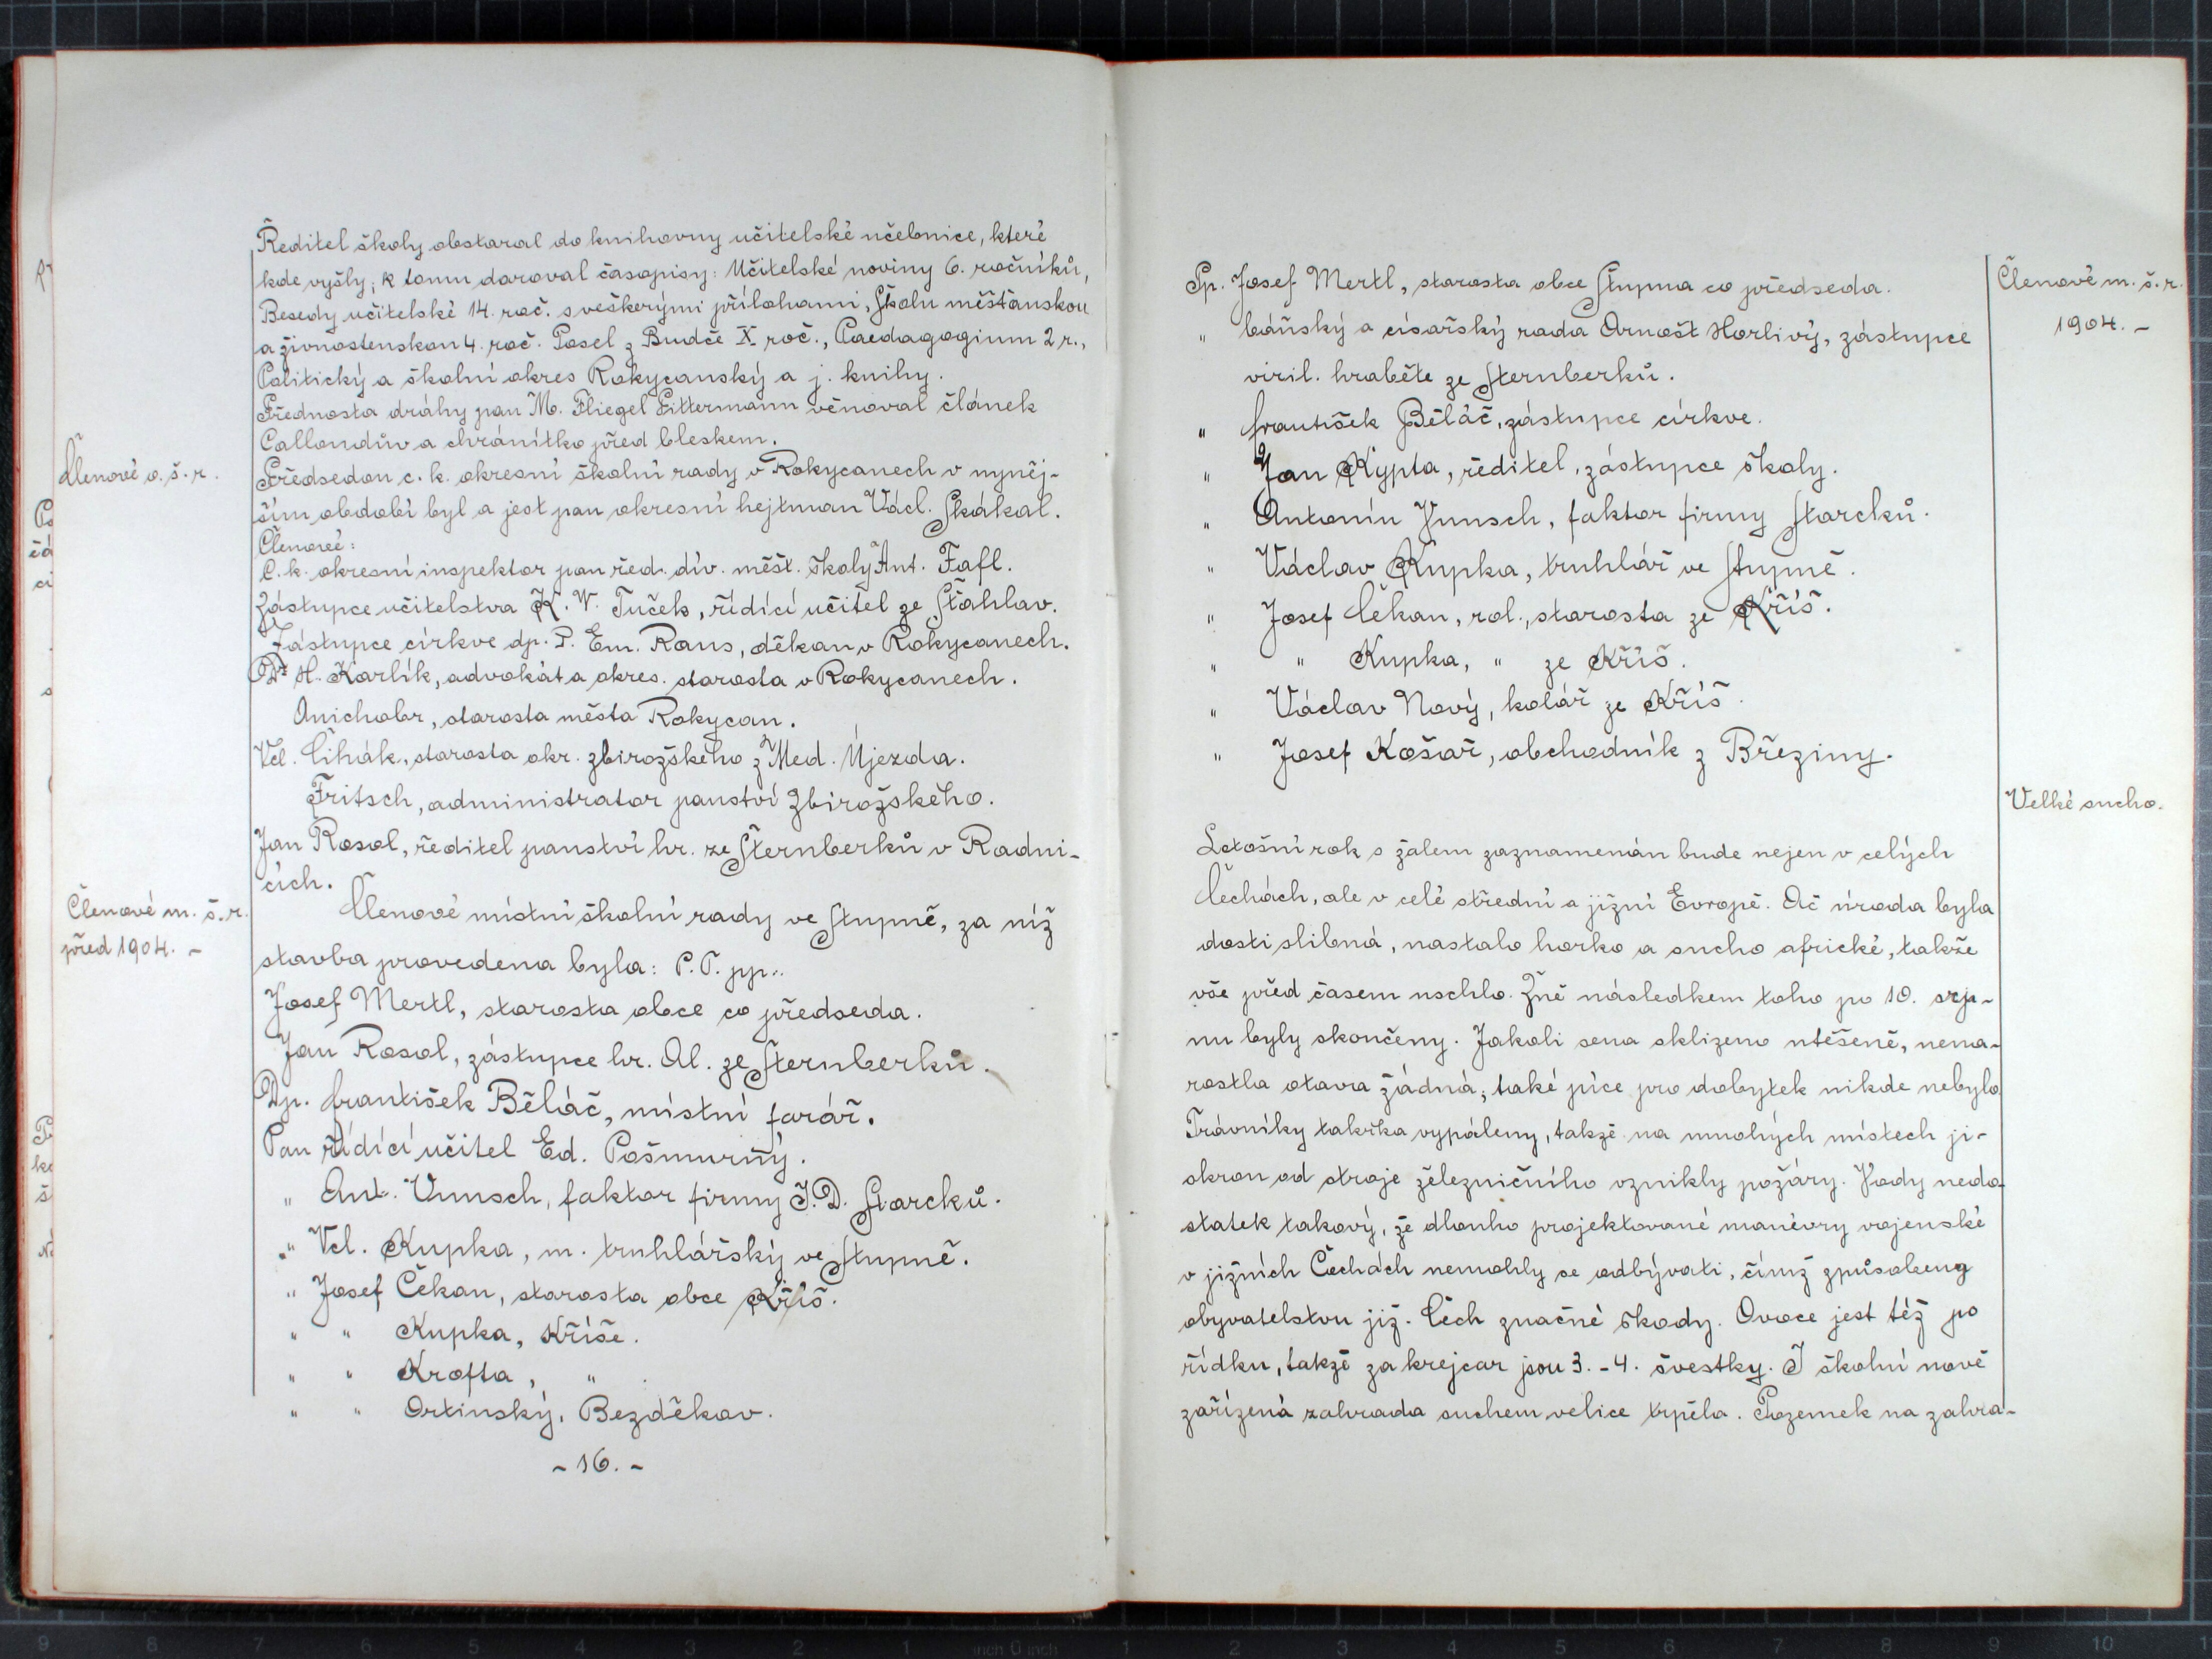 Ředitel školy obstaral do knihovny učitelské učebnice, které
kde vyšly; k tomu daroval časopisy: Učitelské noviny 6. ročníků,
Besedy učitelské 14. roč. s veškerými přílohami, Školu měšťanskou
a živnostenskou 4. roč. Posel z Budče X roč., Paedagogium 2 r.,
Politický a školní okres Rokycanský a j. knihy.
Přednosta dráhy pan M. Fliegel Eittermann věnoval článek
Callondův a chránítko před bleskem.
Členové o. š. r.
Předsedou c. k. okresní školní rady v Rokycanech v nyněj-
ším období byl a jest pan okresní hejtman Václ. Skákal.
Členové:
C. k. okresní inspektor pan řed. dív. měšť. školy Ant. Fafl.
Zástupce učitelstva K. V. Tuček, řídící učitel ze Šťahlav.
Zástupce církve dp. P. Em. Raus, děkan v Rokycanech.
Dr H. Karlík, advokát a okres. starosta v Rokycanech.
Anichobr, starosta města Rokycan.
Vcl. Čihák, starosta okr. zbirožského z Med. Újezda.
Fritsch, administrator panství Zbirožského.
Jan Rosol, ředitel panství hr. ze Šternberků v Radni-
cích.
Členové m. š. r.
před 1904. -
Členové místní školní rady ve Stupně, za níž
stavba provedena byla: P. T. pp..
Josef Mertl, starosta obce co předseda.
Jan Rosol, zástupce hr. Al. ze Šternberků.
Dp. František Běláč, místní farář.
Pan řídící učitel Ed. Pošmurný.
" Ant. Vunsch, faktor firmy J. D. Starcků.
" Vcl. Kupka, m. truhlářský ve Stupně.
" Josef Čekan, starosta obce Kříš.
" " Kupka, Kříše.
" " Krofta, "
" " Ortinský, Bezděkov.
- 16. -
Členové m. š. r.
1904. -
Pp. Josef Mertl, starosta obce Stupna co předseda.
" báňský a císařský rada Arnošt Horlivý, zástupce
viril. hraběte ze Sternberků.
" František Běláč, zástupce církve.
" Jan Kypta, ředitel, zástupce školy.
" Antonín Vunsch, faktor firmy Starcků.
" Václav Kupka, truhlář ve Stupně.
" Josef Čekan, rol., starosta ze Kříš.
" " Kupka, " ze Kříš.
" Václav Nový, kolář ze Kříš.
" Josef Košař, obchodník z Březiny.
Velké sucho.
Letošní rok s žalem zaznamenán bude nejen v celých
Čechách, ale v celé střední a jižní Evropě. Ač úroda byla
dosti slibná, nastalo horko a sucho africké, takže
vše před časem uschlo. Žně následkem toho po 10. srp-
nu byly skončeny. Jakoli sena sklizeno utěšeně, nena-
rostla otava žádná, také píce pro dobytek nikde nebylo
Trávníky takřka vypáleny, takže na mnohých místech ji-
skrou od stroje železničního vznikly požáry. Vody nedo-
statek takový, že dlouho projektované manévry vojenské
v jižních Čechách nemohly se odbývati, čímž způsobeny
obyvatelstvu již. Čech značné škody. Ovoce jest též po
řídku, takže za krejcar jsou 3. - 4. švestky. I školní nově
zařízená zahrada suchem velice trpěla. Pozemek na zahra-